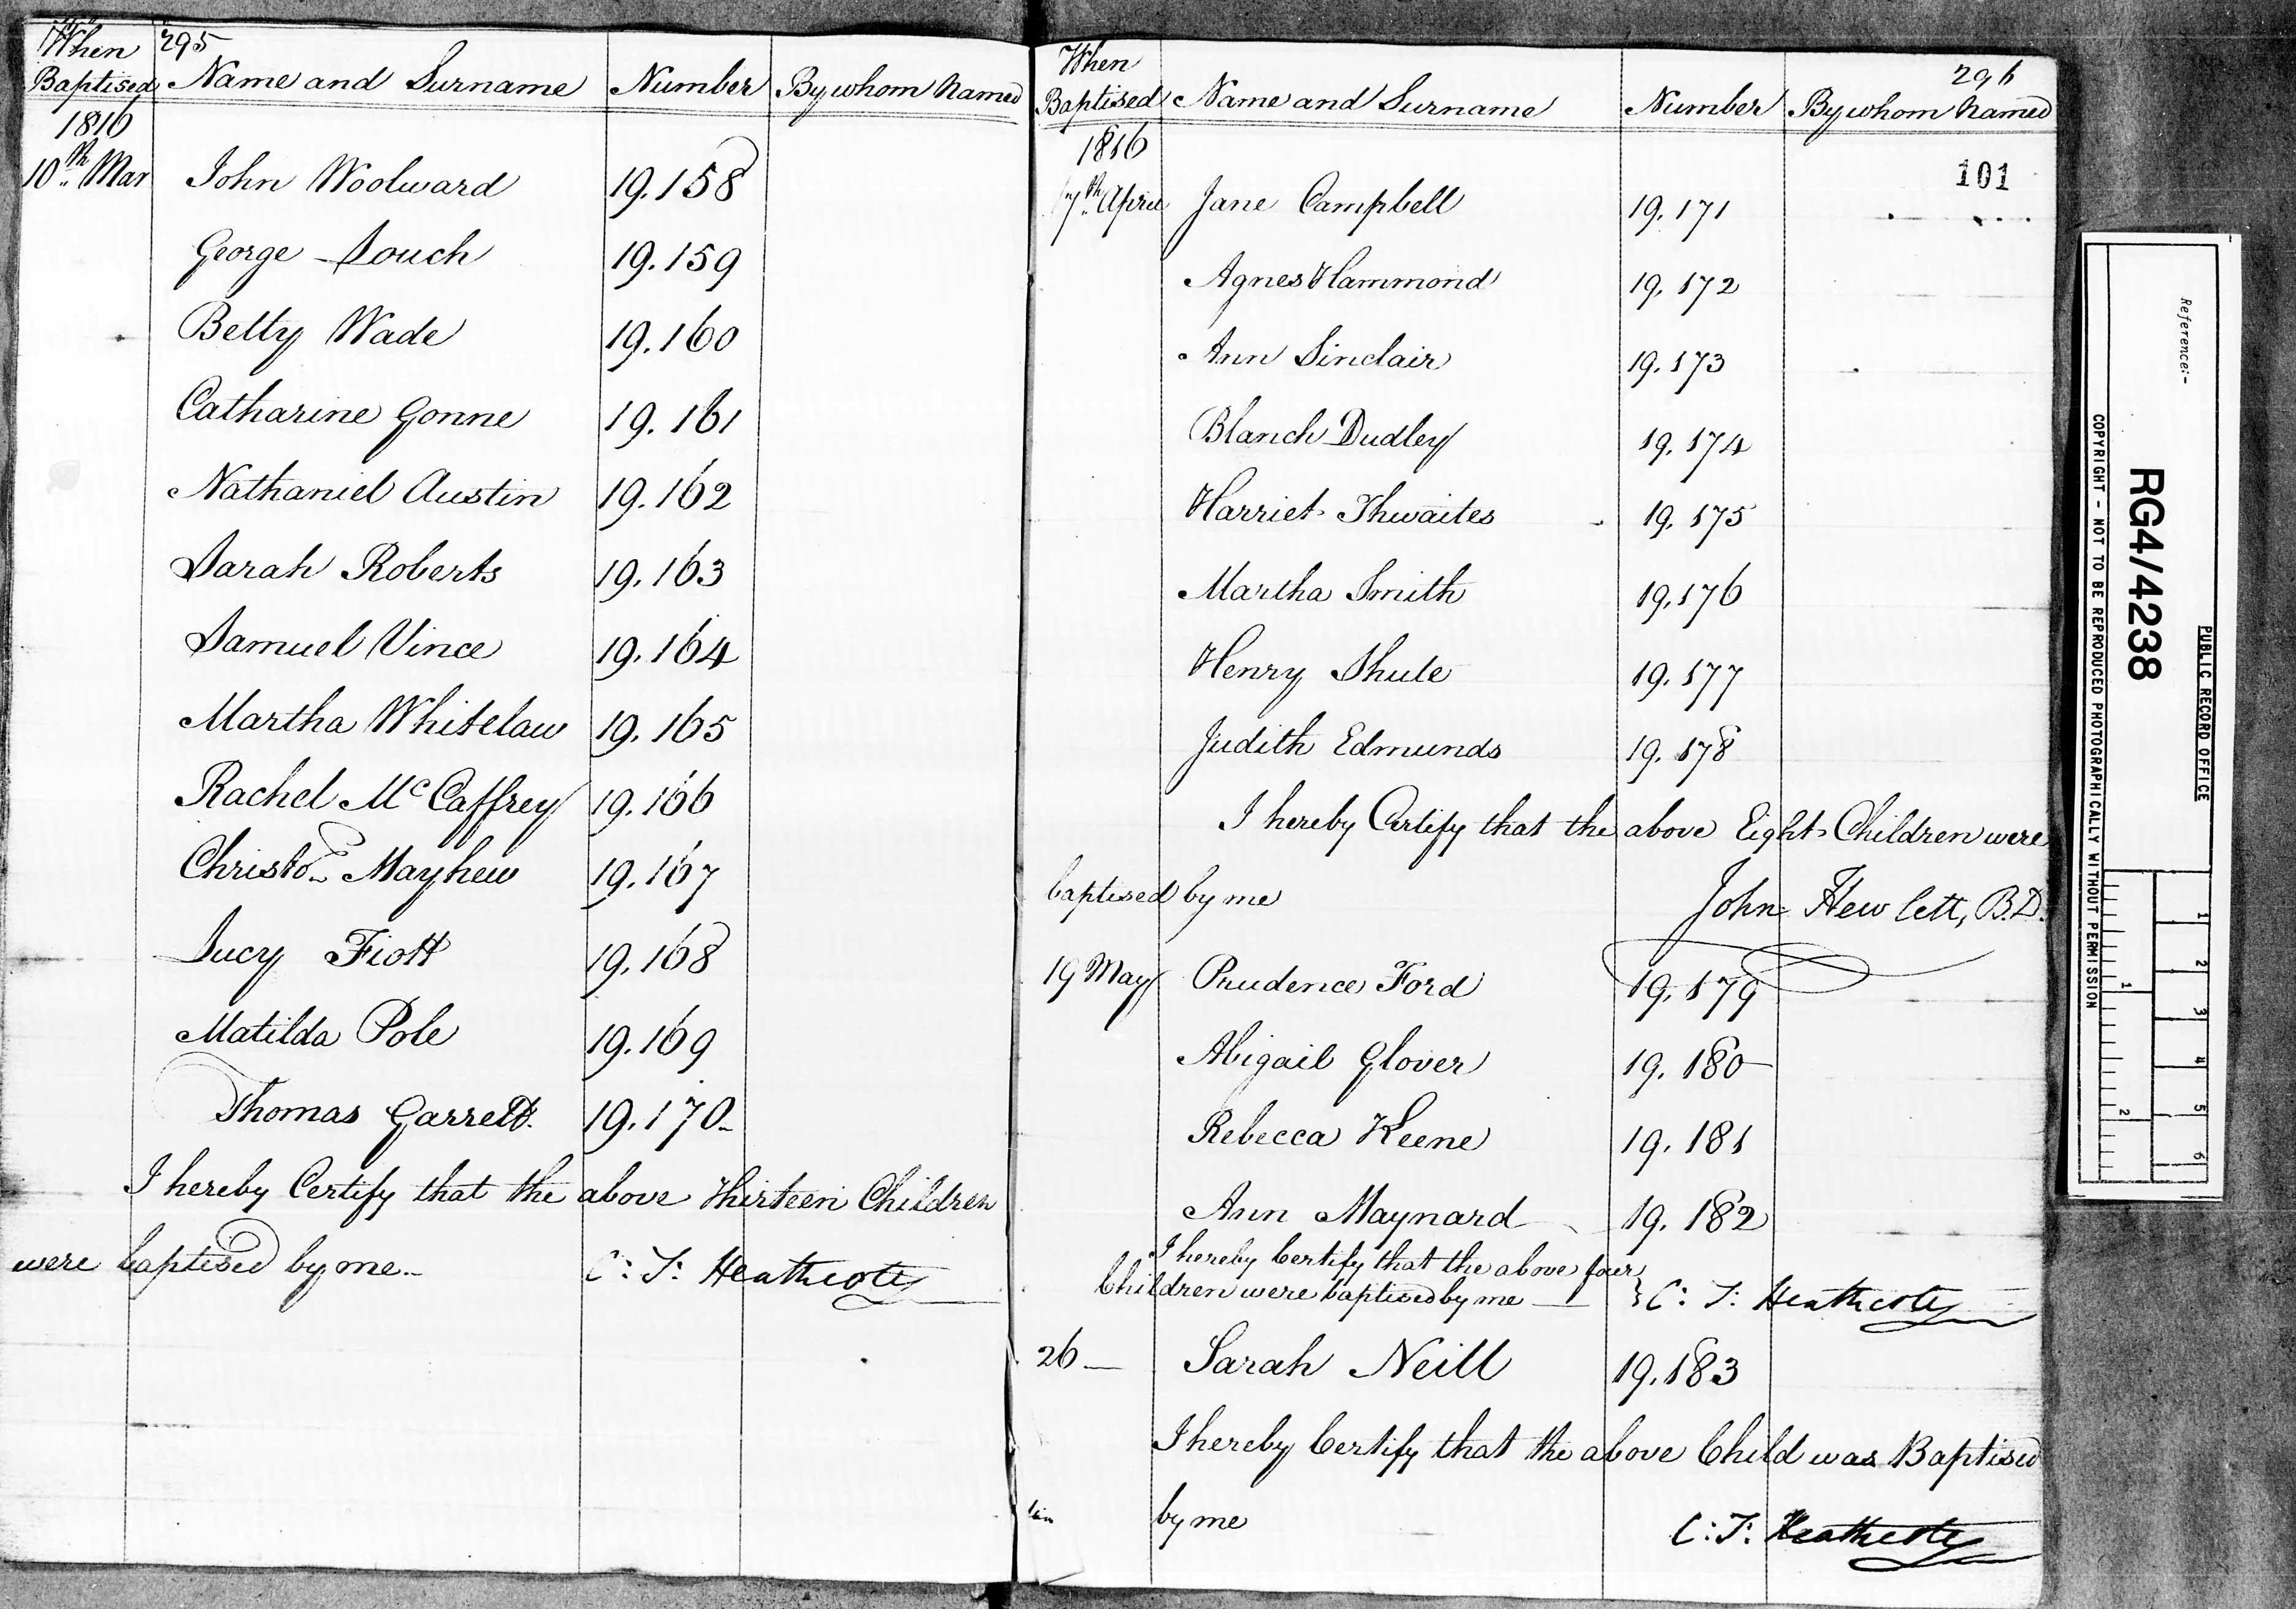 When 295
Baptised Name and Surname Number By whom Named
1816
10th Mar John Woolward 19.158
George Souch 19.159
Betty Wade 19.160
Catharine Gonne 19.161
Nathaniel Austin 19.162
Sarah Roberts 19.163
Samuel Vince 19.164
Martha Whitelaw 19.165
Rachel Mc Caffrey 19.166
Christor Mayhew 19.167
Lucy Fiott 19.168
Matilda Pole 19.169
Thomas Garrett. 19.170
I hereby Certify that the above Thirteen Children
were baptised by me C: T: Heathcote
When 296
Baptised Name and Surname Number By whom Named
1816
101
7th April Jane Campbell 19.171
Agnes Hammond 19.172
Ann Sinclair 19.173
Blanch Dudley 19.174
Harriet Thwaites 19.175
Martha Smith 19.176
Henry Shule 19.177
Judith Edmunds 19.178
I hereby Certify that the above Eight Children were
baptised by me John Hewlett, B.D.
19 May Prudence Ford 19.179
Abigail Glover 19.180
Rebecca Keene 19.181
Ann Maynard 19.182
I hereby Certify that the above four
Children were baptised by me } C: T: Heathcote
26 — Sarah Neill 19.183
I hereby Certify that the above Child was Baptised
by me C: T: Heathcote
PUBLIC RECORD OFFICE
Reference:-
RG4/4238
COPYRIGHT - NOT TO BE REPRODUCED PHOTOGRAPHICALLY WITHOUT PERMISSION
1 2 3 4 5 6
1 2